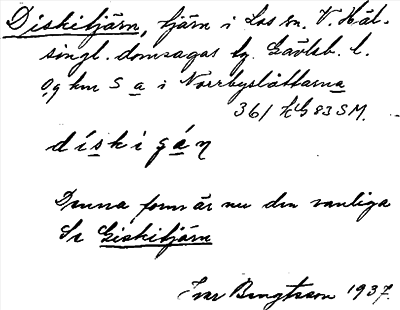 Diskitjärn, tjärn i Los sn. V. Häl-
singl. domsagas tg. Gävleb. l.
0,9 km S a i Norrbyslåttarna
361 KG 83 SM.
díski gán
Denna form är nu den vanliga
Se Giskitjärn
Ivar Bengtsson 1937.